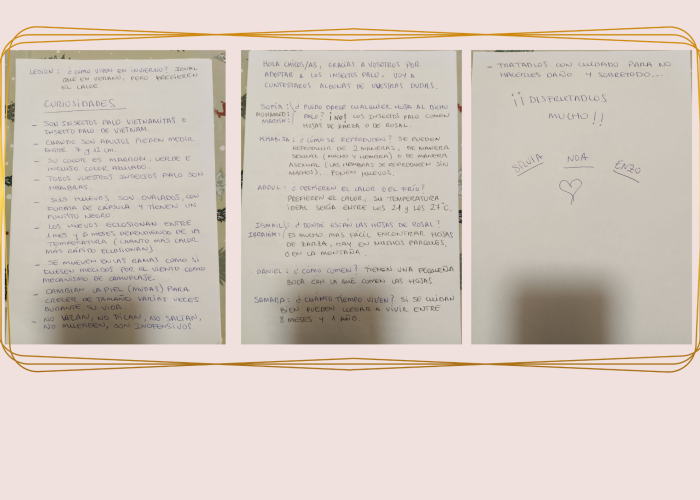 LEGION: ¿COMO VIVEN EN INVIERNO? IGUAL
QUE EN VERANO, PERO PREFIEREN
EL CALOR.
CURIOSIDADES
- SON INSECTOS PALO VIETNAMITAS O
INSECTO PALO DE VIETNAM.
- CUANDO SON ADULTOS PUEDEN MEDIR
ENTRE 7 y 12 CM.
- SU COLOR ES MARRÓN, VERDE E
INCLUSO COLOR
- TODOS VUESTROS INSECTOS PALO SON
HEMBRAS.
- SUS HUEVOS SON OVALADOS, CON
FORMA DE CÁPSULA Y TIENEN UN
PUNTITO NEGRO
- LOS HUEVOS ECLOSIONAN ENTRE
1 MES y MESES DEPENDIENDO DE LA
TEMPERATURA (CUANTO MAS CALOR
MAS RÁPIDO ECLOSIONAN)
- SE MUEVEN EN LAS RAMAS COMO SI
FUESEN MECIDOS POR EL VIENTO COMO
MECANISMO DE CAMUFLAJE.
- CAMBIAN LA PIEL (MUDAS) PARA
CRECER DE TAMAÑO VARIAS VECES
DURANTE SU VIDA.
- NO VUELAN, NO PICAN, NO SALTAN,
NO MUERDEN, SON INOFENSIVOS
HOLA CHICOS/AS, GRACIAS A VOSOTROS POR
ADOPTAR A LOS INSECTOS PALO. VOY A
CONTESTAROS ALGUNAS DE VUESTRAS DUDAS.
SOFÍA: ¿PUEDO COGER CUALQUIER HOJA AL BICHO
MOHAMED: PALO? ¡NO! LOS INSECTOS PALO COMEN
HOJAS DE ZARZA O DE ROSAL.
KHADIJA: ¿CÓMO SE REPRODUCEN? SE PUEDEN
REPRODUCIR DE 2 MANERAS, DE MANERA
SEXUAL (MACHO Y HEMBRA) O DE MANERA
ASEXUAL (LAS HEMBRAS SE REPRODUCEN SIN
MACHO). PONEN HUEVOS.
ABDUL: ¿PREFIEREN EL CALOR O EL FRÍO?
PREFIEREN EL CALOR, SU TEMPERATURA
IDEAL SERÍA ENTRE LOS 21 y LOS 27ºC.
ISMAIL: ¿DONDE ESTAN LAS HOJAS DE ROSAL?
IBRAHIM: ES MUCHO MAS FACIL ENCONTRAR HOJAS
DE ZARZA, HAY EN MUCHOS PARQUES,
O EN LA MONTAÑA.
DANIEL: ¿COMO COMEN? TIENEN UNA PEQUEÑA
BOCA CON LA QUE COMEN LAS HOJAS.
SAMARA: ¿CUANTO TIEMPO VIVEN? SI SE CUIDAN
BIEN PUEDEN LLEGAR A VIVIR ENTRE
8 MESES Y 1 AÑO.
- TRATADLOS CON CUIDADO PARA NO
HACERLES DAÑO Y SOBRETODO...
¡¡DISFRUTADLOS
MUCHO!!
SILVIA NOA ENZO